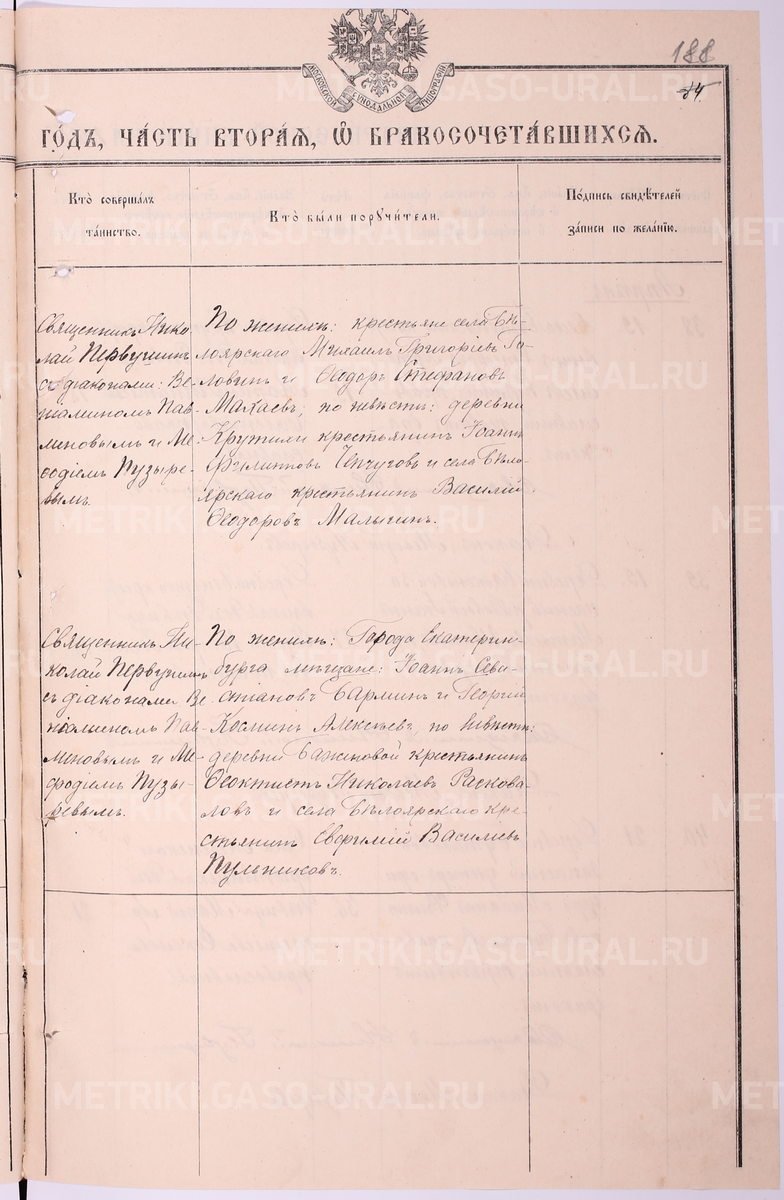 188
84
МОСКОВСКОЙ СѴНОДАЛЬНОЙ ТИПОГРАФІИ
ГО́ДЪ, ЧА́СТЬ ВТОРА́Я, Ѽ БРАКОСОЧЕТА́ВШИХСЯ.
Кто̀ соверша́лъ
та́инство.
Кто̀ бы́ли порꙋчи́тели.
По́дпись свидѣ́телей
за́писи по жела́нїю.
Священникъ Нико-
лай Первушинъ
съ діаконами: Ве-
ніаминомъ Пав-
линовымъ и Ме-
ѳодіемъ Пузыре-
вымъ.
По женихѣ: крестьяне села Бѣ-
лоярскаго Михаилъ Григоріевъ Го-
ловинъ и Ѳеодоръ Стефановъ
Махаевъ; по невѣстѣ: деревни
Крутихи крестьянинъ Іоаннъ
Филипповъ Чепчуговъ и села Бѣло-
ярскаго крестьянинъ Василій
Ѳеодоровъ Малыгинъ.
Священникъ Ни-
колай Первушинъ
съ діаконами Ве-
ніаминомъ Пав-
линовымъ и Ме-
фодіемъ Пузы-
ревымъ.
По женихѣ: Города Екатерин-
бурга мѣщане: Іоаннъ Севи-
стіановъ Барминъ и Георгій
Косминъ Алексѣевъ, по невѣстѣ:
деревни Баженовой крестьянинъ
Ѳеоктистъ Николаевъ Расковa-
ловъ и села Бѣлоярскаго кре-
стьянинъ Евѳимій Васильевъ
Пульниковъ.
METRIKI.GASO-URAL.RU